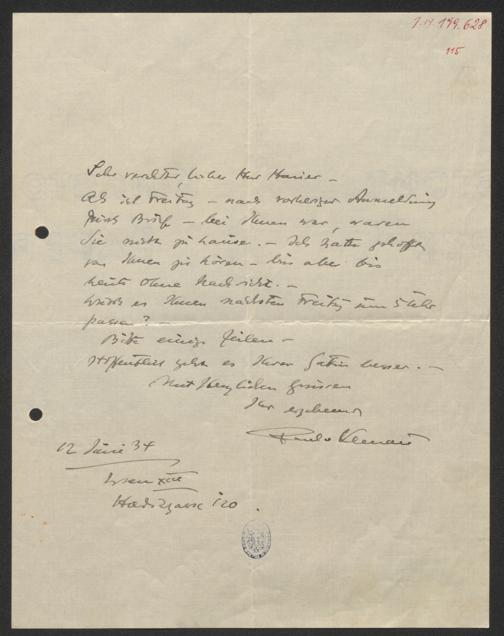 J.N. 179.628
115
Sehr verehrter, lieber Herr Hauer –
Als ich Freitag – nach vorheriger Anmeldung
durch Brief – bei Ihnen war, waren
Sie nicht zu Hause. – Ich hatte gehofft
von Ihnen zu hören – bin aber bis
heute ohne Nachricht. –
Würde es Ihnen nächsten Freitag um 5 Uhr
passen? –
Bitte einige Zeilen –
Hoffentlich geht es Ihrer Gattin besser. –
Mit herzlichen Grüssen
Ihr ergebener
12 Juni 34
Wien XIII
Hadikgasse 120.